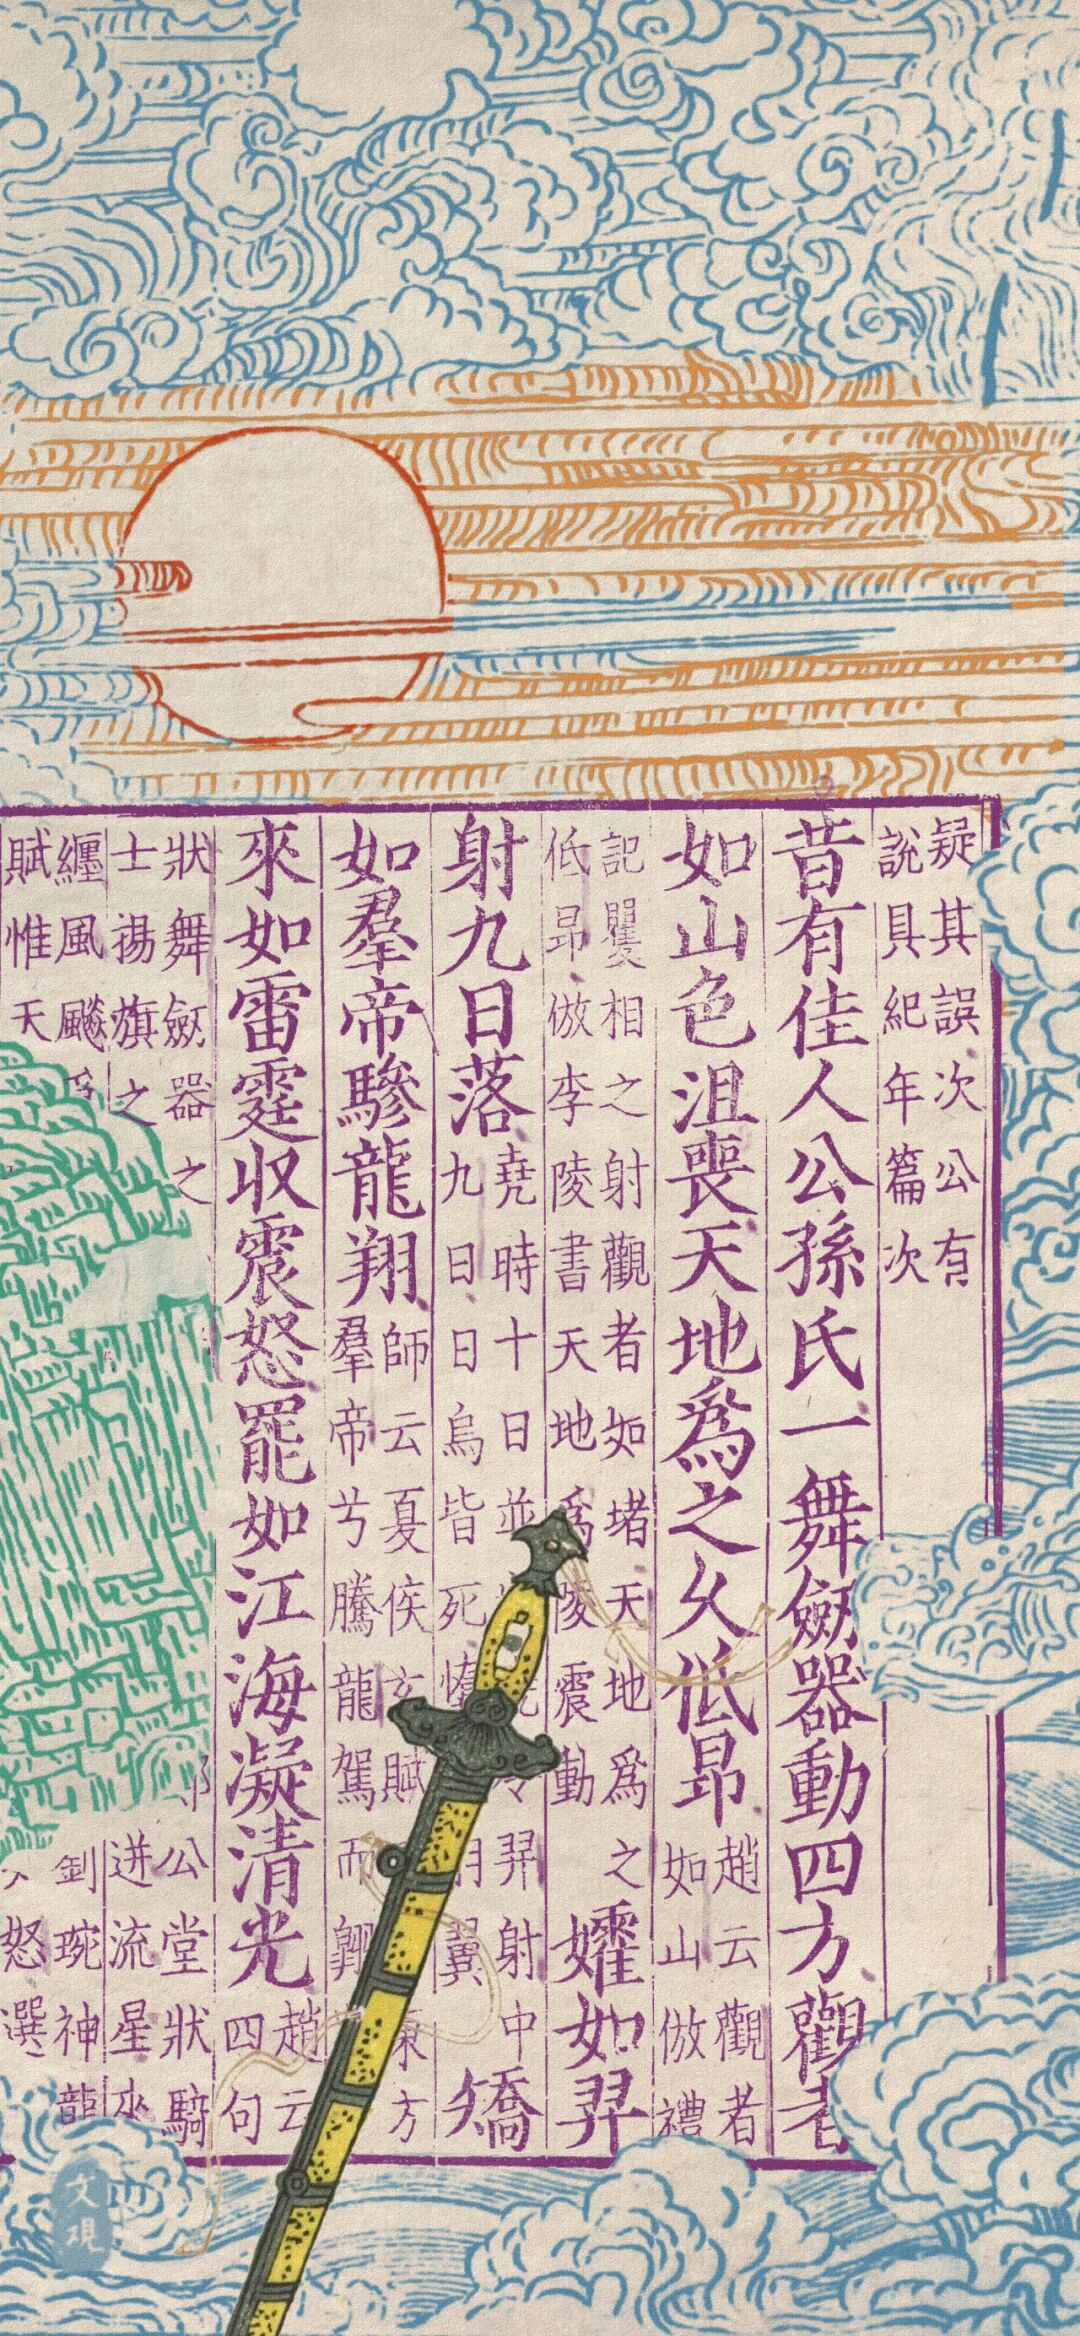 疑其誤次公有
說具紀年篇次
昔有佳人公孫氏一舞劒器動四方觀者
如山色沮喪天地爲之久低昂
趙云觀者
如山倣禮
記矍相之射觀者如堵天地爲之
低昂倣李陵書天地爲陵震動
㸌如羿
射九日落
堯時十日並
羿射中
九日日烏皆死
翼
矯
如羣帝驂龍翔
師云夏侯玄賦
東方
羣帝兮騰龍駕而翺
來如雷霆収震怒罷如江海凝清光
趙云
四句
狀舞劒器之
公堂狀騎
士揚旗之
迸流星來
纏風飈
釗琬神龍
賦惟天
怒選
文現